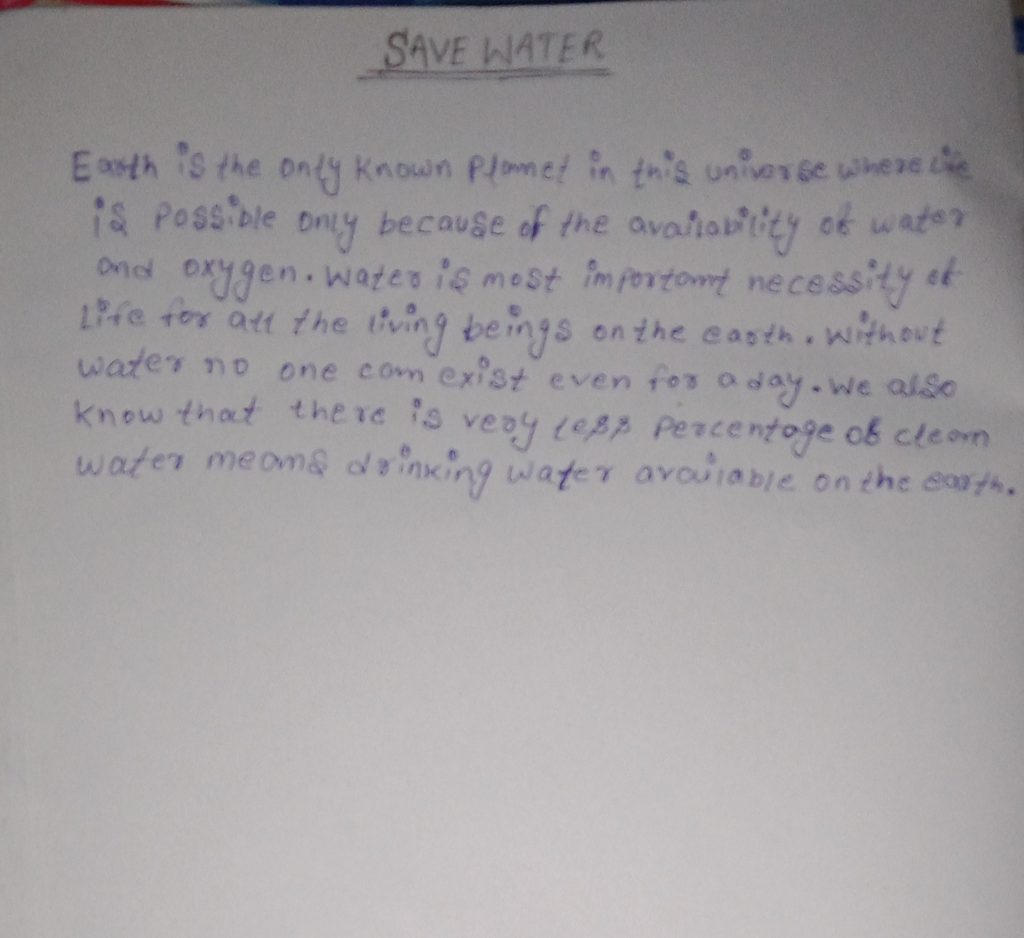 SAVE WATER
Earth is the only known planet in this universe where life
is possible only because of the availability of water
and oxygen. water is most important necessity of
life for all the living beings on the earth. without
water no one can exist even for a day. we also
know that there is very less percentage of clean
water means drinking water available on the earth.